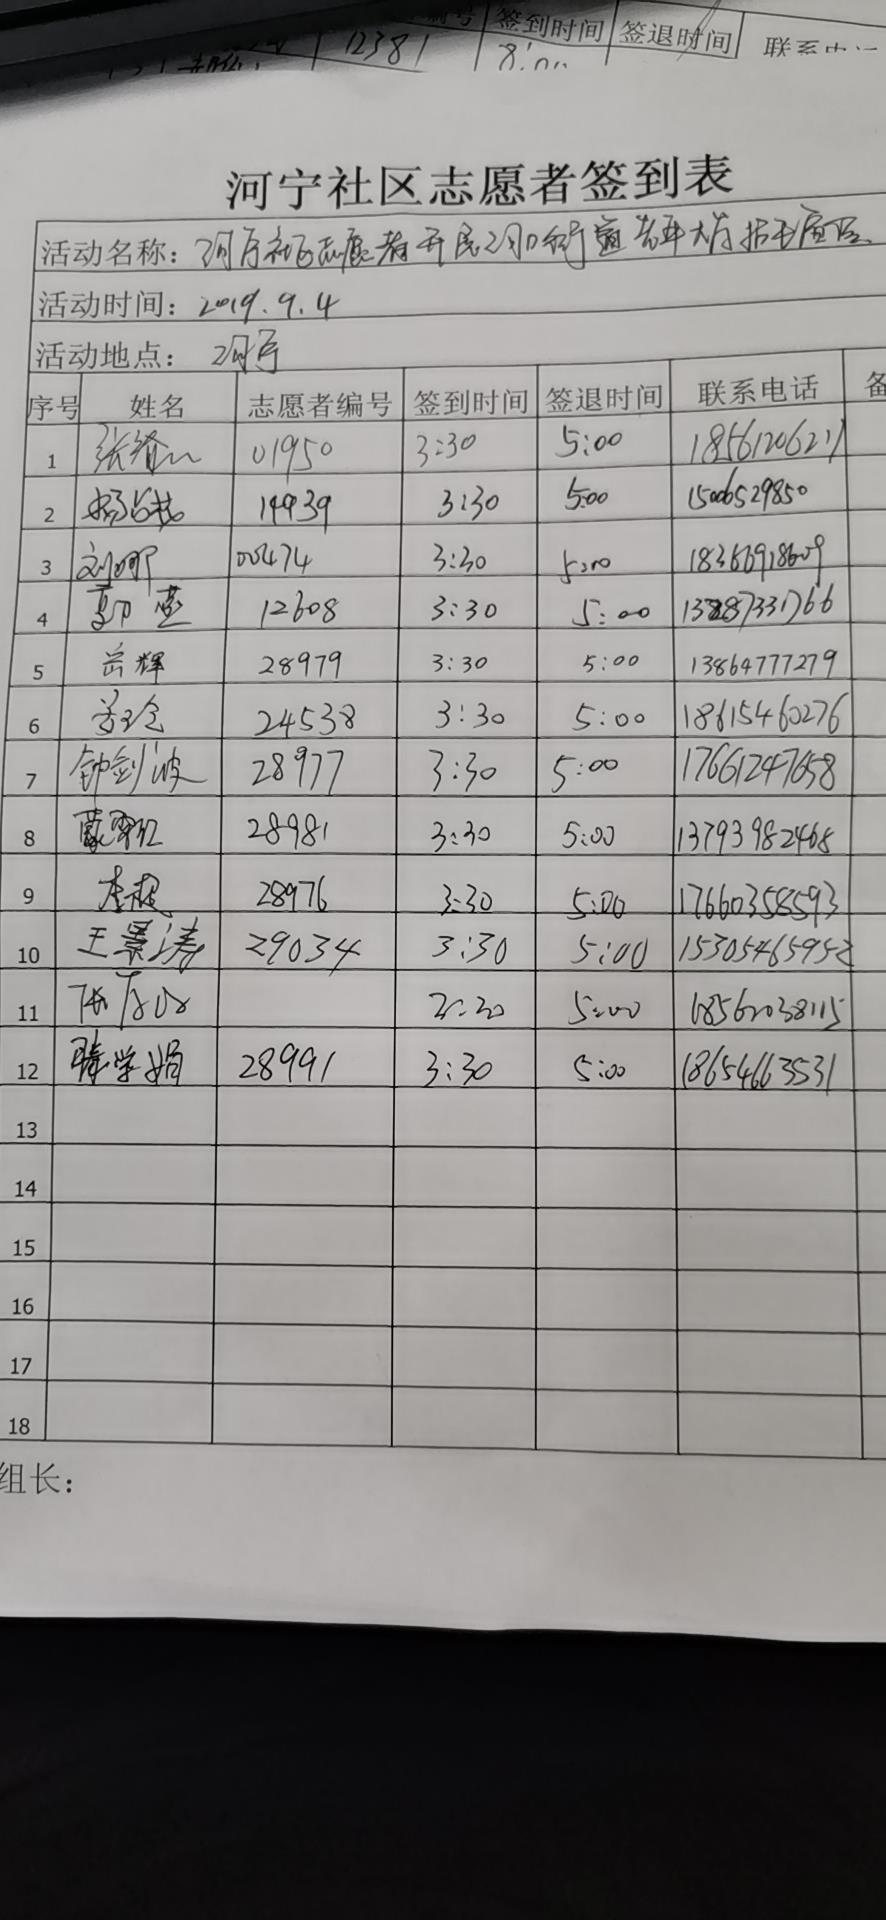 编号 签到时间 签退时间 联系电话
12381 8:00
河宁社区志愿者签到表
活动名称: 河宁社区志愿者
活动时间: 2019.9.4
活动地点: 河宁
序号 姓名 志愿者编号 签到时间 签退时间 联系电话 备
1 01950 3:30 5:00
2 14939 3:30 5:00 15006529850
3 刘娜 00474 3:30 5:00
4 12608 3:30 5:00
5 岳辉 28979 3:30 5:00 13864777279
6 24538 3:30 5:00 18615460276
7 钟剑波 28977 3:30 5:00 17661247658
8 28981 3:30 5:00 13793982468
9 28976 3:30 5:00 17660358593
10 王景涛 29034 3:30 5:00 15305465952
11 5:00 18562038115
12 滕学娟 28991 3:30 5:00 18654663531
13
14
15
16
17
18
组长: